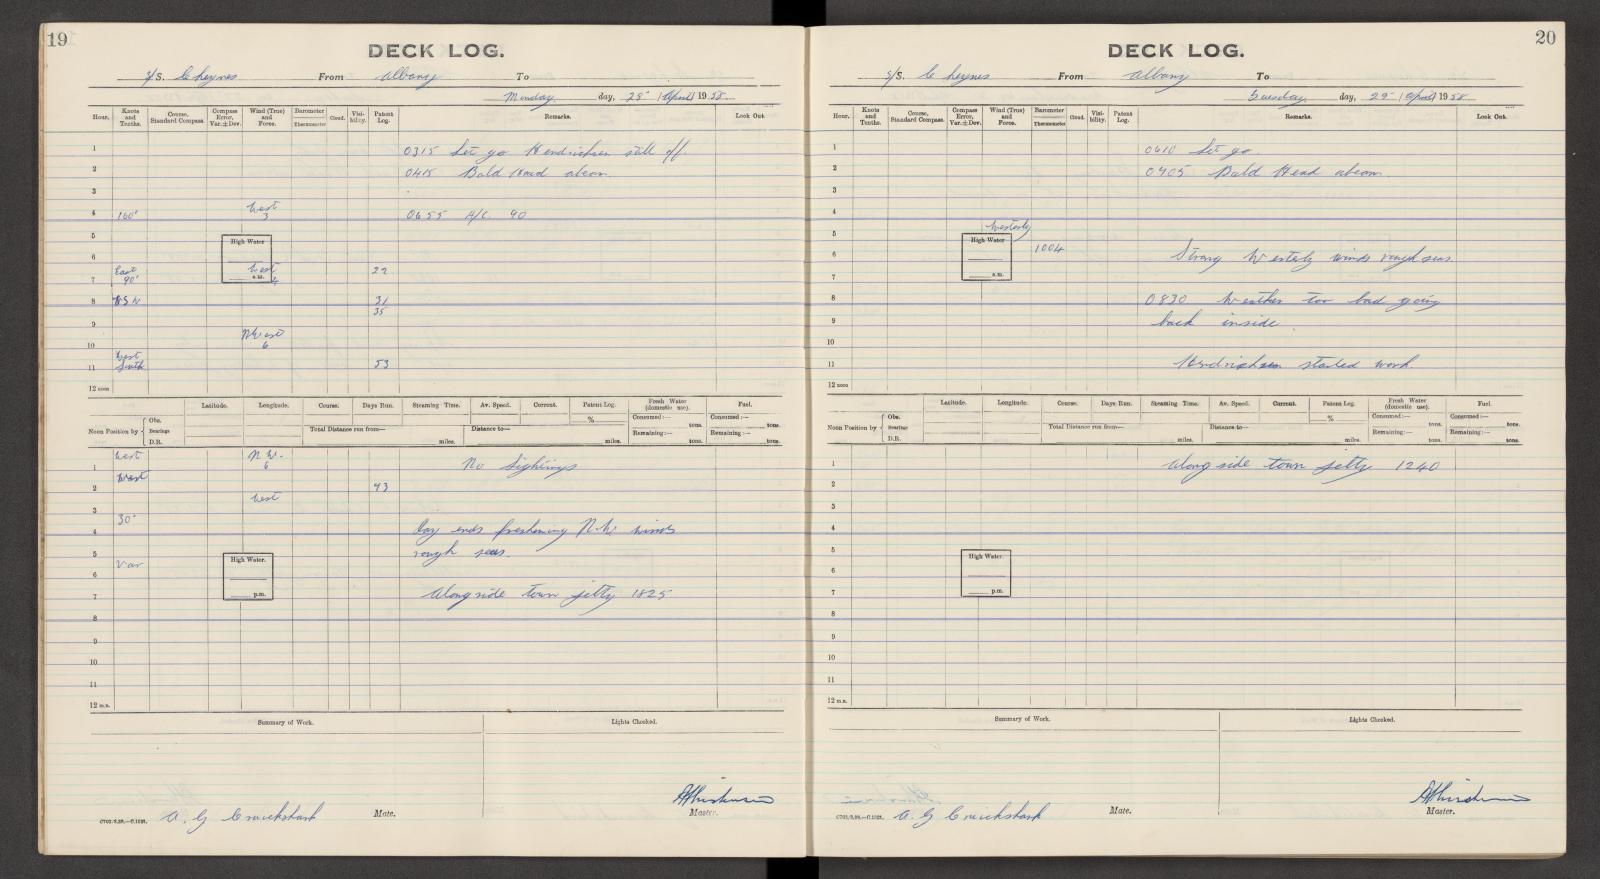 19
DECK LOG.
S/S. Cheynes From Albany To
Monday day, 28 / April / 1958
Hour. Knots and Tenths. Course, Standard Compass. Compass Error, Var.±Dev. Wind (True) and Force. Barometer Thermometer Cloud. Visi-bility. Patent Log. Remarks. Look Out.
1 0315 Let go Hendrichsen still off.
2 0415 Bald Head abeam.
3
4 160° West 3 0655 A/C. 90
5
High Water
6
East 90° West 4 22
7 a.m.
8 WSW 31
35
9
N West 6
10
West
11 South 53
12 noon
Latitude. Longitude. Course. Days Run. Steaming Time. Av. Speed. Current. Patent Log. Fresh Water (domestic use). Fuel.
Noon Position by Obs. Bearings D.R. Total Distance run from— miles. Distance to— miles. % Consumed:— tons. Remaining:— tons. Consumed:— tons. Remaining:— tons.
West N W. 6
1 No Sightings
West
2 93
West
3
30°
4 Day ends freshening N.W. winds
5 rough seas.
Var High Water.
6
7 p.m. Alongside town jetty 1825
8
9
10
11
12 m.n.
Summary of Work. Lights Checked.
C702/3.39.—C.1021. A. G Cruickshank Mate. Master.
20
DECK LOG.
S/S. Cheynes From Albany To
Tuesday day, 29 / April / 1958
Hour. Knots and Tenths. Course, Standard Compass. Compass Error, Var.±Dev. Wind (True) and Force. Barometer Thermometer Cloud. Visi-bility. Patent Log. Remarks. Look Out.
1 0610 Let go.
2 0705 Bald Head abeam.
3
4
Westerly
5
High Water 1004
6 Strong Westerly winds rough seas.
7 a.m.
8 0830 Weather too bad going
9 back inside.
10
11 Hendrichsen started work.
12 noon
Latitude. Longitude. Course. Days Run. Steaming Time. Av. Speed. Current. Patent Log. Fresh Water (domestic use). Fuel.
Noon Position by Obs. Bearings D.R. Total Distance run from— miles. Distance to— miles. % Consumed:— tons. Remaining:— tons. Consumed:— tons. Remaining:— tons.
1 Along side town jetty 1240
2
3
4
5
High Water.
6
7 p.m.
8
9
10
11
12 m.n.
Summary of Work. Lights Checked.
C702/3.39.—C.1021. A. G Cruickshank Mate. Master.